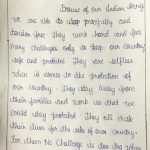 Because of our Indian Army
we are able to sleep peacefully and
tension free. They work hard and face
many challenges only to keep our country
safe and protected. They are selfless
when it comes to the protection of
our country. They stay away from
their families and work so that we
could stay protected. They all risk
their lives for the sake of our country.
For them No challenge is too big when